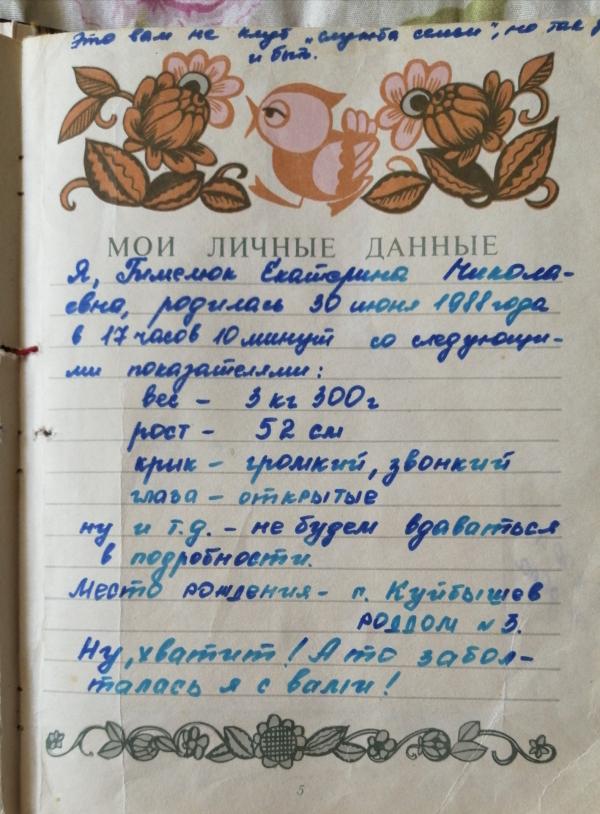 Это вам не клуб "служба семьи", но так
и быть.
МОИ ЛИЧНЫЕ ДАННЫЕ
Я, Гымелюк Екатерина Никола-
евна, родилась 30 июня 1988 года
в 17 часов 10 минут со следующи-
ми показателями:
вес - 3 кг 300 г
рост - 52 см
крик - громкий, звонкий
глаза - открытые
ну и т.д. - не будем вдаваться
в подробности.
Место рождения - г. Куйбышев
роддом № 3.
Ну, хватит! А то забол-
талась я с вами!
5